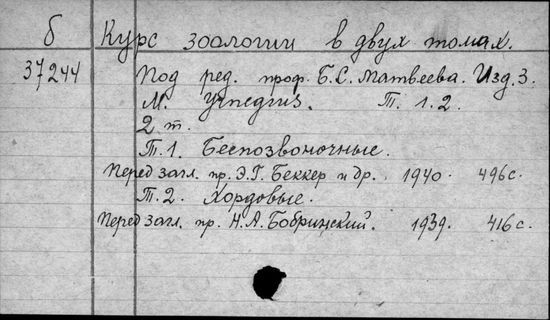 б Курс зоологии в двух томах.
37244 Под ред. проф. Б.С. Матвеева. Изд. 3.
М. Учпедгиз. Т. 1. 2.
2 т.
Т. 1. Беспозвоночные.
Перед загл. пр. Э.Г. Беккер и др. 1940. 496 с.
Т. 2. Хордовые.
Перед загл. пр. Н.А. Бобринский. 1939. 416 с.